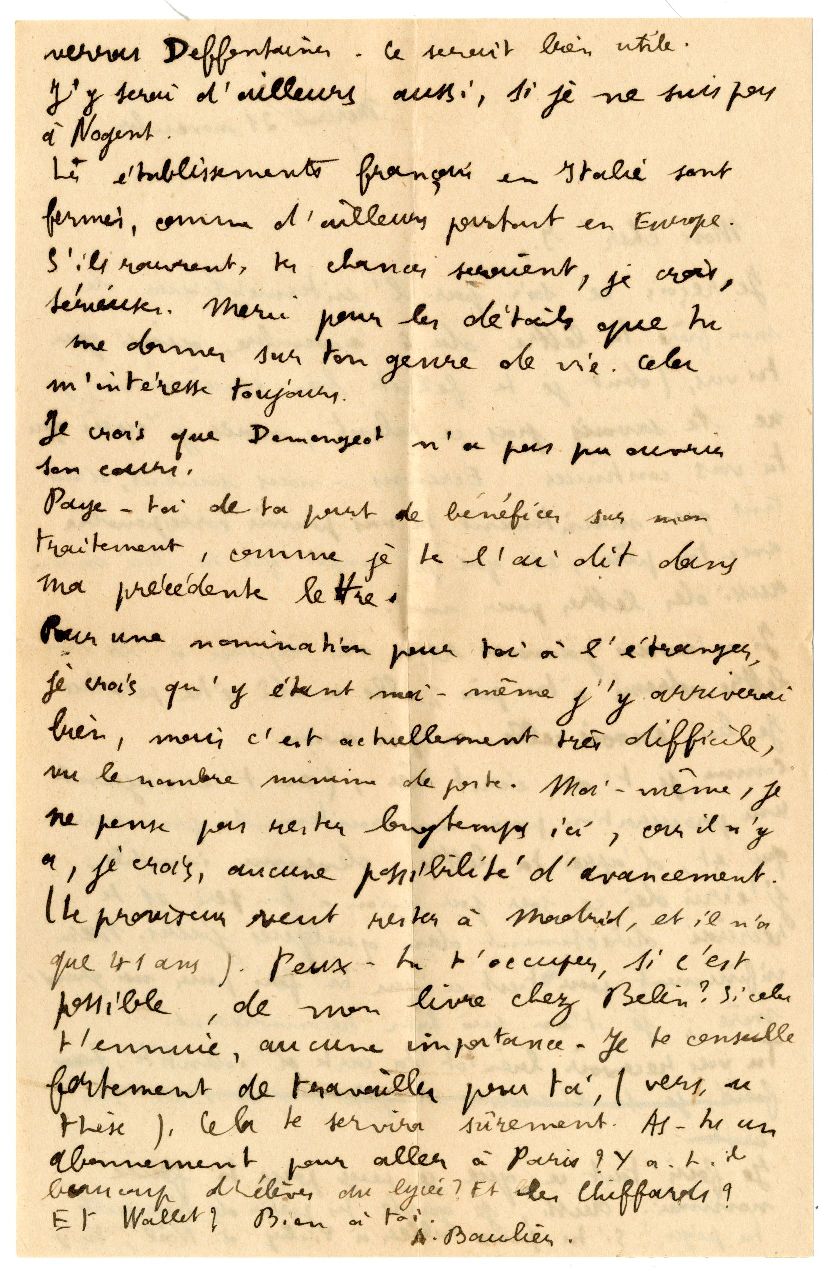 verras Deffontaines. Ce serait bien utile.
J'y serai d'ailleurs aussi, si je ne suis pas
à Nogent.
Les établissements français en Italie sont
fermés, comme d'ailleurs partout en Europe.
S'ils rouvrent, tes chances seraient, je crois,
sérieuses. Merci pour les détails que tu
me donnes sur ton genre de vie. Cela
m'intéresse toujours.
Je crois que Demangeot n'a pas pu ouvrir
son cours.
Paye-toi de ta part de bénéfices sur mon
traitement, comme je te l'ai dit dans
ma précédente lettre.
Pour une nomination pour toi à l'étranger,
je crois qu'y étant moi-même j'y arriverai
bien, mais c'est actuellement très difficile,
vu le nombre minime de poste. Moi-même, je
ne pense pas rester longtemps ici, car il n'y
a, je crois, aucune possibilité d'avancement.
(Le proviseur veut rester à Madrid, et il n'a
que 41 ans). Peux-tu t'occuper, si c'est
possible, de mon livre chez Belin? Si cela
t'ennuie, aucune importance - Je te conseille
fortement de travailler pour toi, (vers, ou
thèse). Cela te servira sûrement. As-tu un
abonnement pour aller à Paris? Y a-t-il
beaucoup d'élèves au lycée? Et les Chiffards?
Et Wallet? Bien à toi.
A. Baulier.